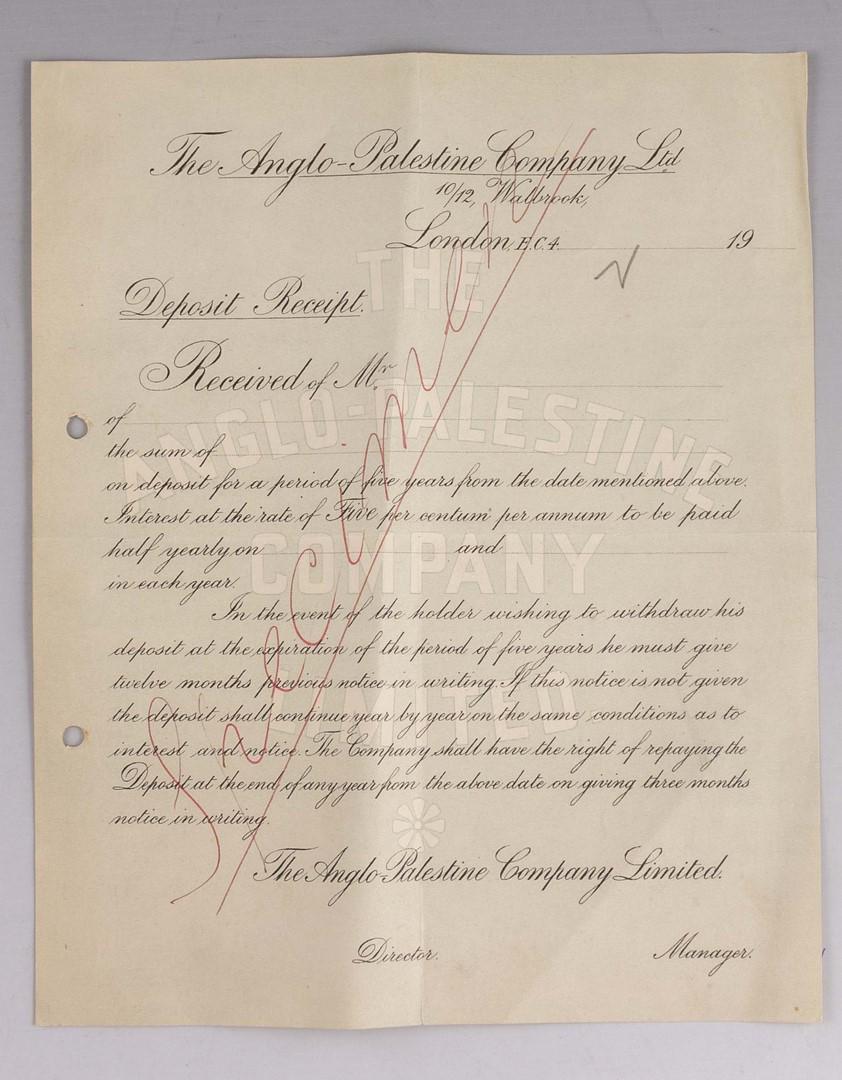 The Anglo-Palestine Company Ltd
10/12, Walbrook,
London, E.C.4. 19
Deposit Receipt.
Received of Mr.
of
the sum of
on deposit for a period of five years from the date mentioned above.
Interest at the rate of Five per centum per annum to be paid
half yearly on and
in each year.
In the event of the holder wishing to withdraw his
deposit at the expiration of the period of five years he must give
twelve months previous notice in writing. If this notice is not given
the deposit shall continue year by year on the same conditions as to
interest and notice. The Company shall have the right of repaying the
Deposit at the end of any year from the above date on giving three months
notice in writing.
The Anglo-Palestine Company Limited.
Director. Manager.
Specimen
THE
ANGLO-PALESTINE
COMPANY
LIMITED